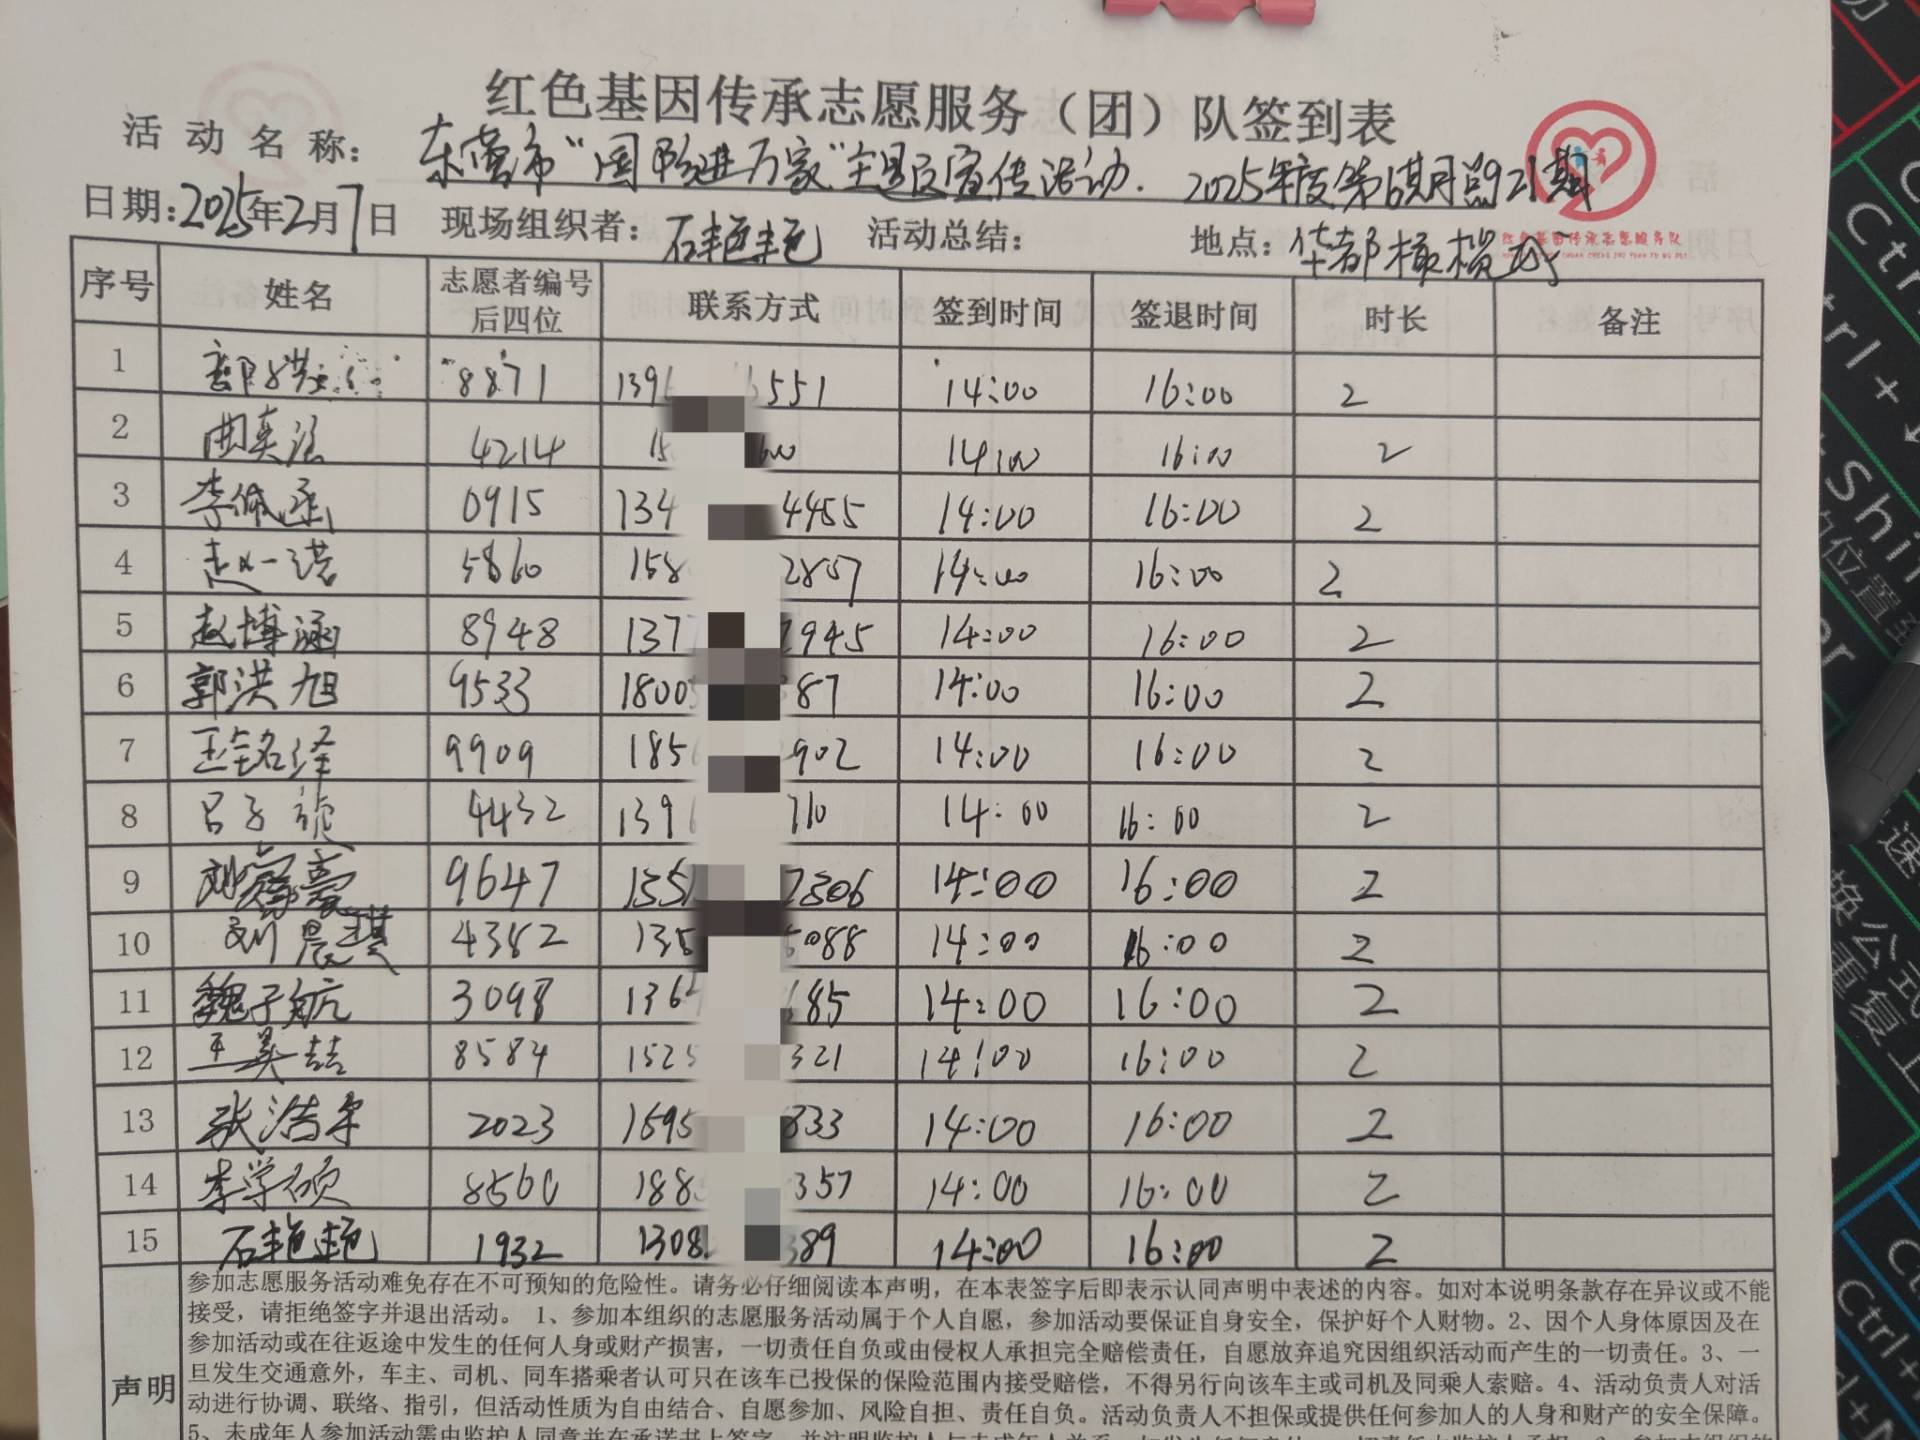 红色基因传承志愿服务（团）队签到表
活动名称：东营市“国防进万家”主题宣传活动. 2025年度第6期总第921期
日期：2025年2月7日 现场组织者：石艳艳 活动总结： 地点：华都橄榄城
红色基因传承志愿服务队
序号 姓名 志愿者编号后四位 联系方式 签到时间 签退时间 时长 备注
1 8871 139 551 14:00 16:00 2
2 曲奕泓 4214 15 14:00 16:00 2
3 李佩函 0915 134 4455 14:00 16:00 2
4 赵一诺 5860 158 2857 14:00 16:00 2
5 赵博涵 8948 137 2945 14:00 16:00 2
6 郭洪旭 9533 1800 387 14:00 16:00 2
7 王铭泽 9909 185 902 14:00 16:00 2
8 吕子 4432 139 710 14:00 16:00 2
9 刘 9647 155 2306 14:00 16:00 2
10 刘晨琪 4382 135 5088 14:00 16:00 2
11 魏子航 3098 136 685 14:00 16:00 2
12 王美喆 8584 1525 321 14:00 16:00 2
13 张浩宇 2023 1595 833 14:00 16:00 2
14 李学硕 8560 188 357 14:00 16:00 2
15 石艳艳 1932 1308 389 14:00 16:00 2
声明
参加志愿服务活动难免存在不可预知的危险性。请务必仔细阅读本声明，在本表签字后即表示认同声明中表述的内容。如对本说明条款存在异议或不能
接受，请拒绝签字并退出活动。 1、参加本组织的志愿服务活动属于个人自愿，参加活动要保证自身安全，保护好个人财物。2、因个人身体原因及在
参加活动或在往返途中发生的任何人身或财产损害，一切责任自负或由侵权人承担完全赔偿责任，自愿放弃追究因组织活动而产生的一切责任。3、一
旦发生交通意外，车主、司机、同车搭乘者认可只在该车已投保的保险范围内接受赔偿，不得另行向该车主或司机及同乘人索赔。4、活动负责人对活
动进行协调、联络、指引，但活动性质为自由结合、自愿参加、风险自担、责任自负。活动负责人不担保或提供任何参加人的人身和财产的安全保障。
5、未成年人参加活动需由监护人同意并在承诺书上签字
Ctrl
Ctrl +
Shift
位置
换公式
重复上
Ctrl
Ctrl+